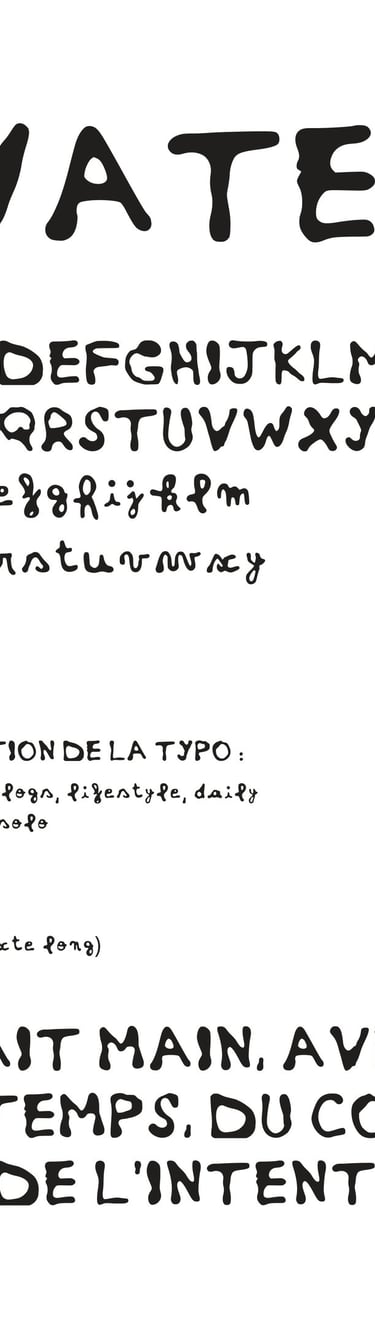 VATE
DEFGHIJKLM
QRSTUVWXY
efghijklm
rstuvwxy
TION DE LA TYPO :
logs, lifestyle, daily
solo
xte long)
AIT MAIN, AV
TEMPS, DU CO
DE L'INTENT